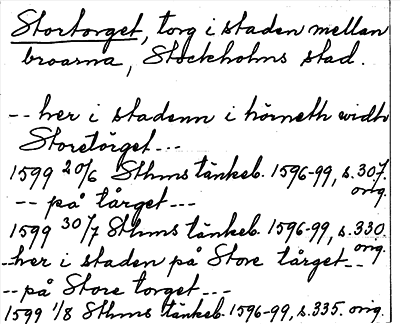 Stortorget, torg i staden mellan
broarna, Stockholms stad.
-- her i stadenn i hörneth widh
Storetorget ---
1599 20/6 Sthms tänkeb. 1596-99, s. 307.
orig.
-- på tårget ---
1599 30/7 Sthms tänkeb. 1596-99, s. 330
orig.
-- her i staden på Store tårget --
-- på Store torget ---
1599 1/8 Sthms tänkeb. 1596-99, s. 335. orig.